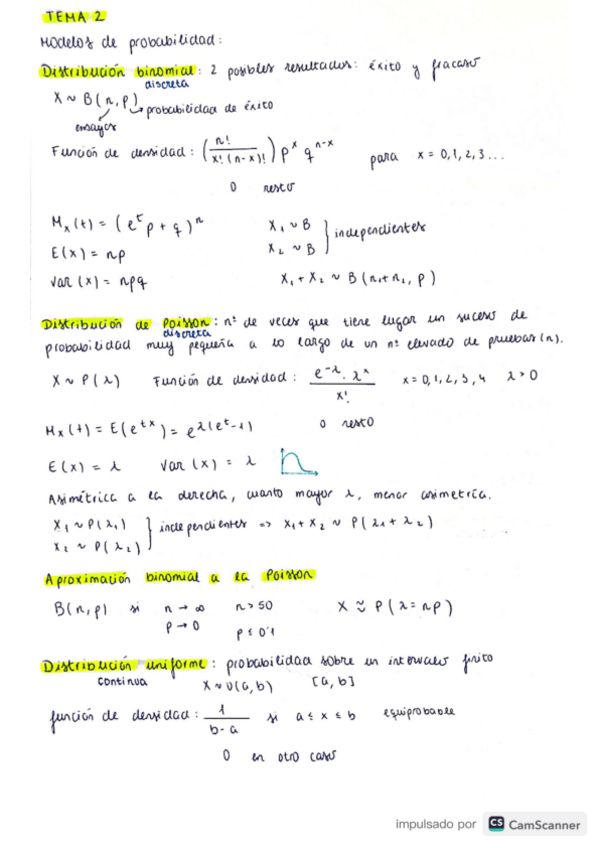 TEMA 2
Modelos de probabilidad:
Distribución binomial: 2 posibles resultados: éxito y fracaso
discreta
X ~ B(n,p) → probabilidad de éxito
ensayos
Función de densidad: (n! / x!(n-x)!) p^x q^n-x para x = 0,1,2,3...
0 resto
Mx(t) = (e^t p + q)^n X₁ ~ B
X₂ ~ B } independientes
E(x) = np
Var(x) = npq X₁ + X₂ ~ B(n₁+n₂, p)
Distribución de Poisson: nº de veces que tiene lugar un suceso de
discreta
probabilidad muy pequeña a lo largo de un nº elevado de pruebas (n).
X ~ P(λ) Función de densidad: e^-λ · λ^x / x! x = 0,1,2,3,4 λ > 0
Mx(t) = E(e^tx) = e^λ(e^t-1) 0 resto
E(x) = λ Var(x) = λ
Asimétrica a la derecha, cuanto mayor λ, menor asimetría.
X₁ ~ P(λ₁)
X₂ ~ P(λ₂) } independientes => X₁ + X₂ ~ P(λ₁ + λ₂)
Aproximación binomial a la Poisson
B(n,p) si n → ∞ n > 50 X ≈ P(λ = np)
p → 0 p ≤ 0'1
Distribución uniforme: probabilidad sobre un intervalo finito
continua X ~ U(a,b) [a,b]
función de densidad: 1 / b-a si a ≤ x ≤ b equiprobable
0 en otro caso
impulsado por CS CamScanner